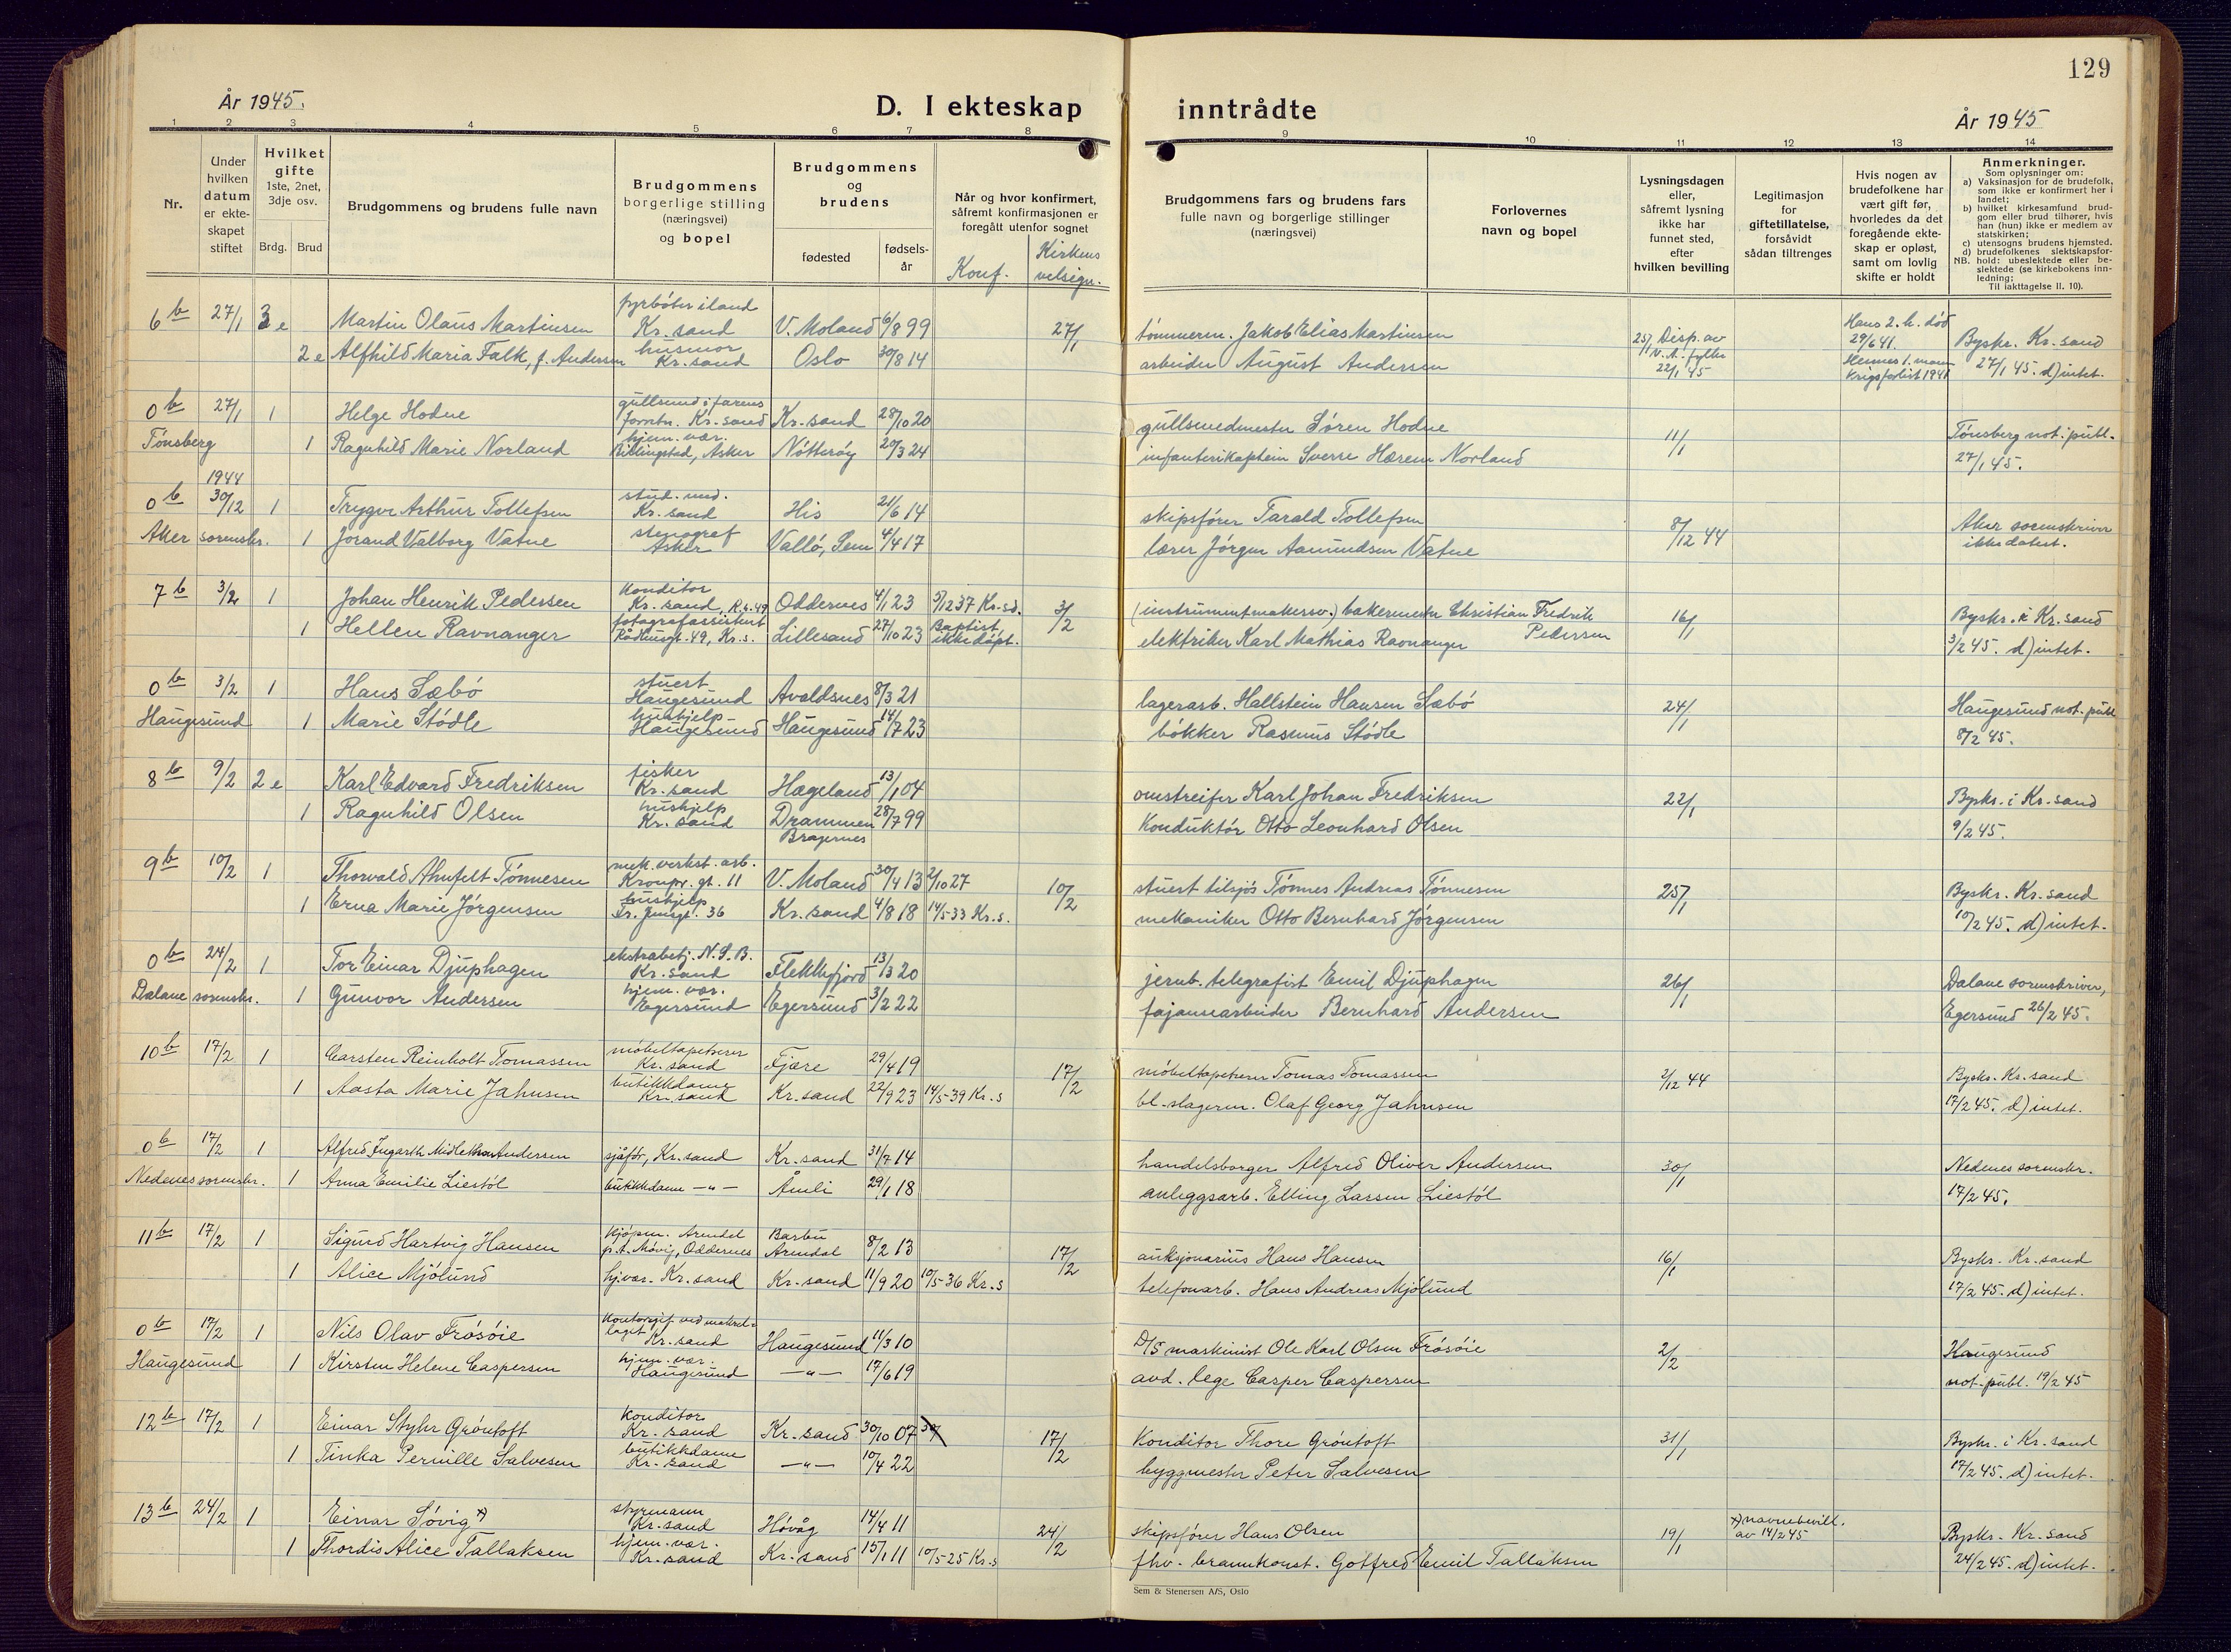 129
År 1945.
D. I ekteskap inntrådte
År 1945
1 2 3 4 5 6 7 8 9 10 11 12 13 14
Nr.
Under hvilken datum er ekteskapet stiftet
Hvilket gifte 1ste, 2net, 3dje osv.
Brdg. Brud
Brudgommens og brudens fulle navn
Brudgommens borgerlige stilling (næringsvei) og bopel
Brudgommens og brudens
fødested fødselsår
Når og hvor konfirmert, såfremt konfirmasjonen er foregått utenfor sognet
Konf. Kirkens velsign.
Brudgommens fars og brudens fars fulle navn og borgerlige stillinger (næringsvei)
Forlovernes navn og bopel
Lysningsdagen eller, såfremt lysning ikke har funnet sted, efter hvilken bevilling
Legitimasjon for giftetillatelse, forsåvidt sådan tiltrenges
Hvis nogen av brudefolkene har vært gift før, hvorledes da det foregående ekteskap er opløst, samt om lovlig skifte er holdt
Anmerkninger.
Som oplysninger om:
a) Vaksinasjon for de brudefolk, som ikke er konfirmert her i landet;
b) hvilket kirkesamfund brudgom eller brud tilhører, hvis han (hun) ikke er medlem av statskirken;
c) utensogns brudens hjemsted.
d) brudefolkenes slektskapsforhold: ubeslektede eller beslektede (se kirkebokens innledning;
NB. Til iakttagelse ll. 10).
6 b 27/1 3 e Martin Olaus Martinsen fyrbøter iland Kr.sand V. Moland 6/8 99 27/1 tømmerm. Jakob Elias Martinsen 25/1 Disp. av Hans 2. h. død 29/6 41. Byskr. Kr. sand
2 e Alfhild Maria Falk, f. Andersen husmor Kr. sand Oslo 30/8 14 arbeider August Andersen 22/1 45 Hennes 1. mann krigsforlist 1941 27/1 45. d) intet.
0 b 27/1 1 Helge Hodne gullsmed i farens forretn. Kr. sand Kr. sand 28/10 20 gullsmedmester Søren Hodne 11/1 Tønsberg not. publ.
Tønsberg 1 Ragnhild Marie Norland hjem. vær. Billingstad, Asker Nøtterøy 20/3 24 infanterikaptein Sverre Hærem Norland 27/1 45.
1944
0 b 30/12 1 Trygve Arthur Tollefsen stud. med. Kr. sand His 21/6 14 skipsfører Tarald Tollefsen 8/12 44 Aker sorenskriver
Aker sorenskr. 1 Jorand Valborg Vatne stenograf Asker Valló, Sem 4/4 17 lærer Jörgen Aamundsen Vatne ikke datert.
7 b 3/2 1 Johan Henrik Pedersen konditor Kr. sand, R.g. 49 Oddernes 4/1 23 5/12 37 Kr.sd. 3/2 (instrumentmakersv.) bakermester Christian Fredrik Pedersen 16/1 Byskr. i Kr. sand
1 Hellen Ravnanger fotografassistent Rådhusgt. 49, Kr. s. Lillesand 27/10 23 Baptist, ikke døpt. elektriker Karl Mathias Ravnanger 3/2 45. d) intet.
0 b 3/2 1 Hans Sæbö stuert Haugesund Avaldsnes 8/3 21 lagerarb. Hallstein Hansen Sæbö 24/1 Haugesund not. publ
Haugesund 1 Marie Stödle hushjelp Haugesund Haugesund 14/7 23 bökker Rasmus Stödle 8/2 45.
8 b 9/2 2 e Karl Edvard Fredriksen fisker Kr. sand Hægeland 13/1 04 omstreifer Karl Johan Fredriksen 22/1 Byskr. i Kr. sand
1 Ragnhild Olsen hushjelp Kr. sand Drammen Bragernes 28/7 99 Konduktör Otto Leonhard Olsen 9/2 45.
9 b 10/2 1 Thorvald Ahnfelt Tönnesen mek. verkst. arb. Kronpr. gt. 11 V. Moland 30/4 13 2/10 27 10/2 stuert tilsjös Tönnes Andreas Tönnesen 25/1 Byskr. Kr. sand
1 Erna Marie Jörgensen hushjelp 36 Kr. sand 4/8 18 14/5-33 Kr. s. mekaniker Otto Bernhard Jörgensen 10/2 45. d) intet.
0 b 24/2 1 Tor Einar Djuphagen ekstrabetj. N.S.B. Kr. sand Flekkefjord 13/3 20 jernb. telegrafist Emil Djuphagen 26/1 Dalane sorenskriver,
Dalane sorenskr. 1 Gunvor Andersen hjem. vær. Egersund Egersund 3/2 22 fajansearbeider Bernhard Andersen Egersund 26/2 45.
10 b 17/2 1 Carsten Reinholt Tomassen möbeltapetserer Kr. sand Fjære 29/4 19 17/2 möbeltapetserer Tomas Tomassen 2/12 44 Byskr. Kr. sand
1 Aasta Marie Jahnsen butikkdame Kr. sand Kr. sand 22/9 23 14/5-39 Kr. s bl. slagerm. Olaf Georg Jahnsen 17/2 45. d) intet.
0 b 17/2 1 Alfred Ingarth Andersen sjåfør, Kr. sand Kr. sand 31/7 14 handelsborger Alfred Oliver Andersen 30/1 Nedenes sorenskr.
Nedenes sorenskr. 1 Anna Emilie Liestöl butikkdame -"- Åmli 29/1 18 anleggsarb. Elling Larsen Liestöl 17/2 45.
11 b 17/2 1 Sigurd Hartvig Hansen kjöpm. Arendal p.t. Møvig, Oddernes Barbu Arendal 8/2 13 17/2 auksjonarius Hans Hansen 16/1 Byskr. Kr. sand
1 Alice Mjölund hj. vær. Kr. sand Kr. sand 11/9 20 10/5-36 Kr. s telefonarb. Hans Andreas Mjölund 17/2 45. d) intet.
0 b 17/2 1 Nils Olav Frösöie kontorsjef ved makrellaget Kr. sand Haugesund 11/3 10 D/S maskinist Ole Karl Olsen Frösöie 2/2 Haugesund
Haugesund 1 Kirsten Helene Caspersen hjem. vær. Haugesund -"- 17/6 19 avd. lege Casper Caspersen not. publ. 19/2 45
12 b 17/2 1 Einar Styhr Gröntoft konditor Kr. sand Kr. sand 30/10 07 17/2 Konditor Thore Gröntoft 31/1 Byskr. i Kr. sand
1 Tinka Pernille Salvesen butikkdame Kr. sand -"- 10/4 22 byggmester Peter Salvesen 17/2 45. d) intet.
13 b 24/2 1 Einar Sövig x) styrmann Kr. sand Hövåg 14/4 11 24/2 skipsfører Hans Olsen 19/1 x) navnebevill. av 14/2 45 Byskr. Kr. sand
1 Thordis Alice Tallaksen hjem. vær. Kr. sand Kr. sand 15/1 11 10/5-25 Kr. s fhv. brannkonst. Gotfred Emil Tallaksen 24/2 45. d) intet.
Sem & Stenersen A/S, Oslo